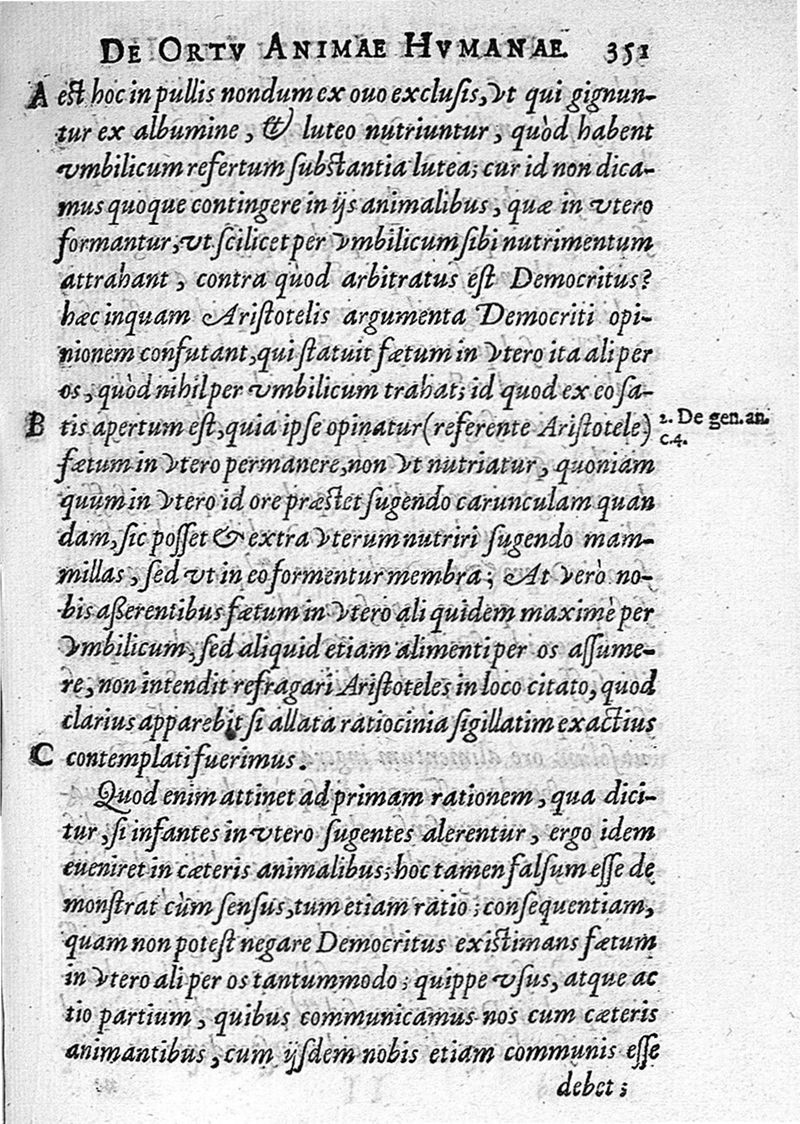 DE ORTV ANIMAE HVMANAE. 351
A est hoc in pullis nondum ex ouo exclusis, vt qui gignun-
tur ex albumine, & luteo nutriuntur, quòd habent
vmbilicum refertum substantia lutea; cur id non dica-
mus quoque contingere in ijs animalibus, quæ in vtero
formantur, vt scilicet per vmbilicum sibi nutrimentum
attrahant, contra quòd arbitratus est Democritus?
hæc inquam Aristotelis argumenta Democriti opi-
nionem confutant, qui statuit fætum in vtero ita ali per
os, quòd nihil per vmbilicum trahat; id quod ex eo sa-
B tis apertum est, quia ipse opinatur (referente Aristotele)
2. De gen. an.
c.4.
fætum in vtero permanere, non vt nutriatur, quoniam
quum in vtero id ore præstet sugendo carunculam quan
dam, sic posset & extra vterum nutriri sugendo mam-
millas, sed vt in eo formentur membra; At verò no-
bis aßerentibus fætum in vtero ali quidem maximè per
vmbilicum, sed aliquid etiam alimenti per os assume-
re, non intendit refragari Aristoteles in loco citato, quod
clarius apparebit si allata ratiocinia sigillatim exactius
C contemplati fuerimus.
Quod enim attinet ad primam rationem, qua dici-
tur, si infantes in vtero sugentes alerentur, ergo idem
eueniret in cæteris animalibus; hoc tamen falsum esse de
monstrat cùm sensus, tum etiam ratio; consequentiam,
quam non potest negare Democritus existimans fætum
in vtero ali per os tantummodo; quippe vsus, atque ac
tio partium, quibus communicamus nos cum cæteris
animantibus, cum ijsdem nobis etiam communis esse
debet;